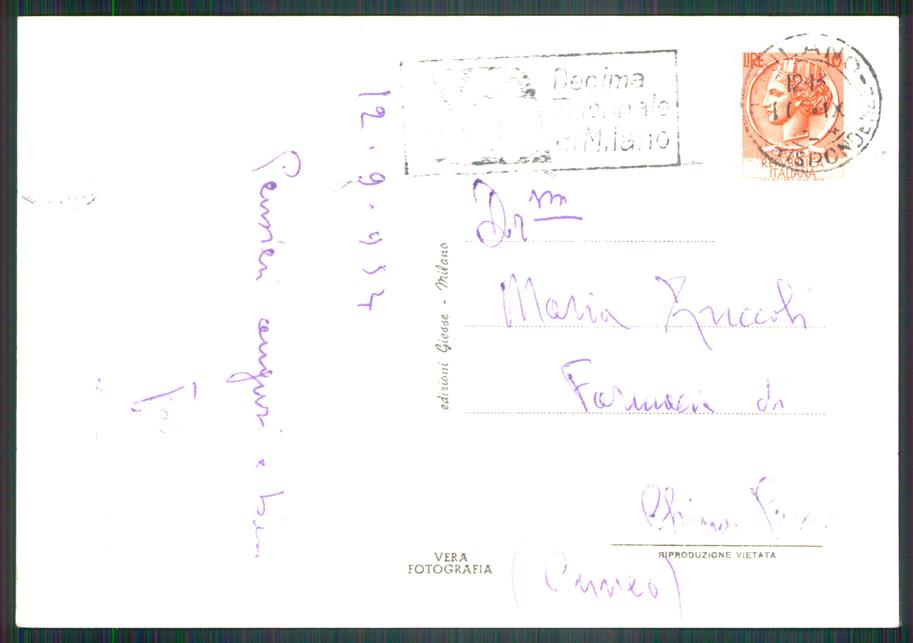 Decima
Triennale
di Milano
LIRE 10
MILANO
CORRISPONDENZE
12-13
IX
REPUBBLICA
ITALIANA
12.9.954
Pensieri auguri e
edizioni Giesse - Milano
Dr.
Maria Zuccoli
Farmacia di
Chiusa
(Cuneo)
RIPRODUZIONE VIETATA
VERA
FOTOGRAFIA